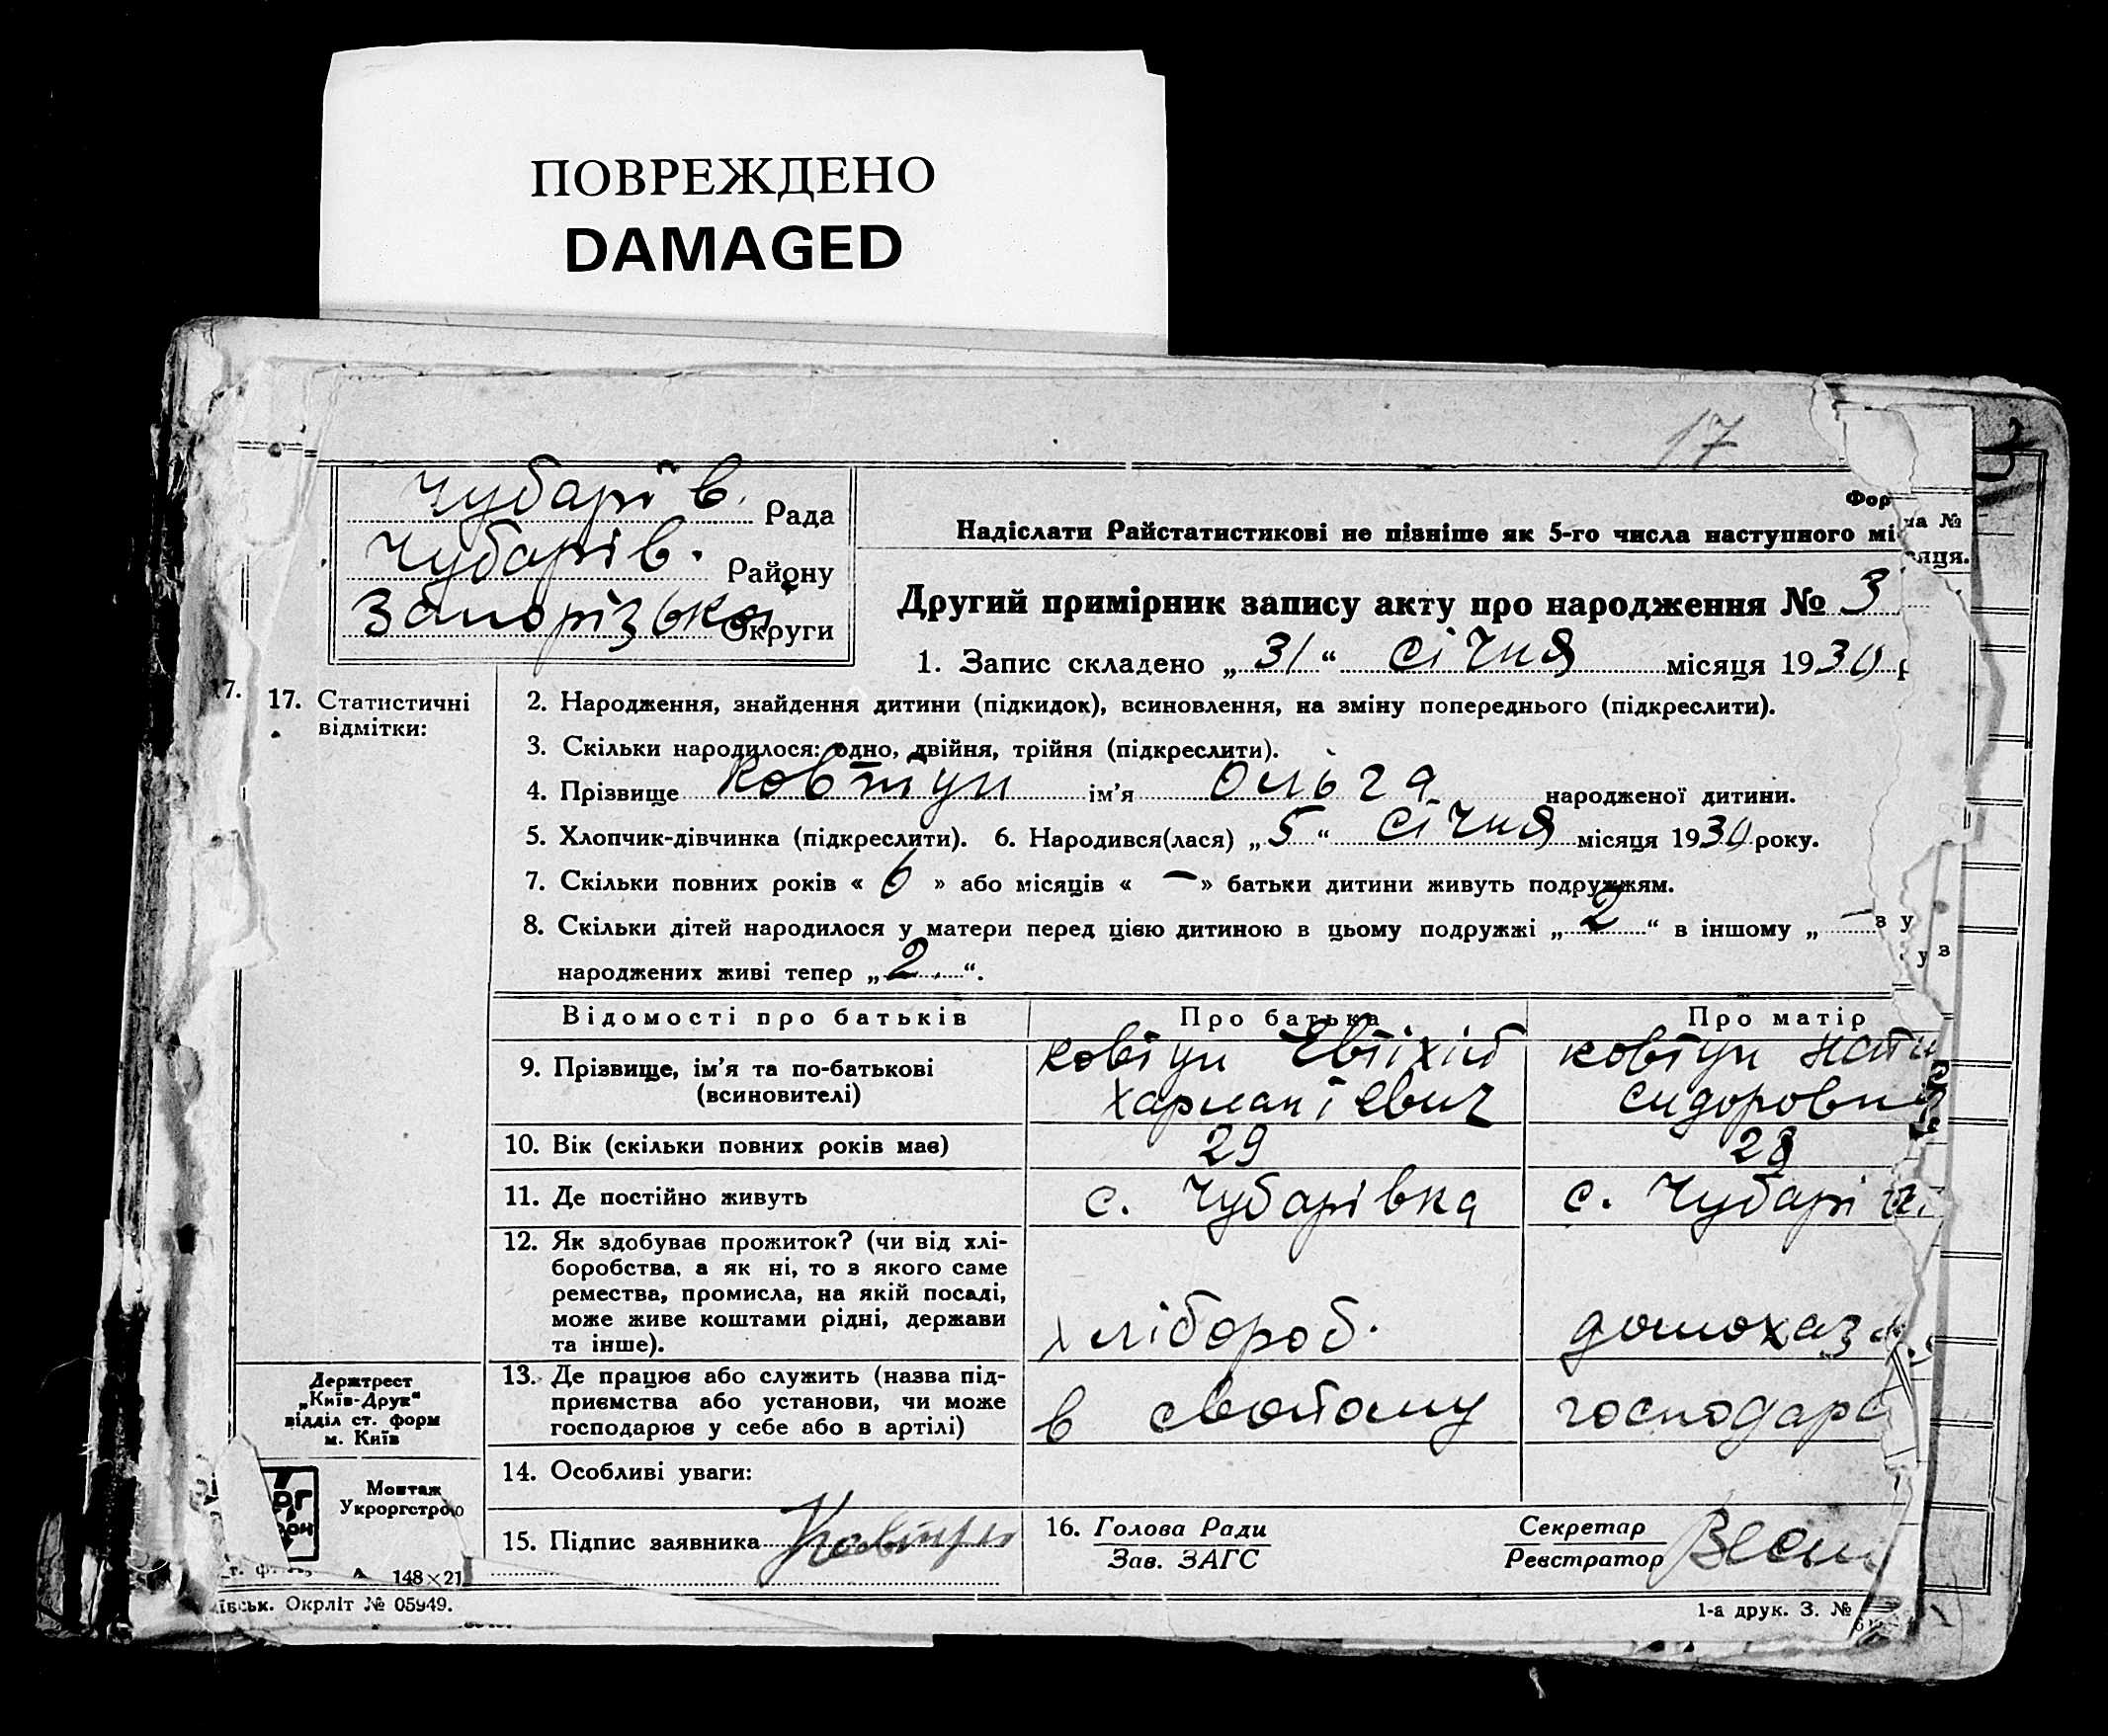 ПОВРЕЖДЕНО
DAMAGED
17
Чубарів. Рада
Чубарів. Району
Запорізької Округи
Фор
ма №
Надіслати Райстатистикові не пізніше як 5-го числа наступного мі
сяця.
Другий примірник запису акту про народження № 3
1. Запис складено „31“ січня місяця 1930 р
17. Статистичні
відмітки:
2. Народження, знайдення дитини (підкидок), всиновлення, на зміну попереднього (підкреслити).
3. Скільки народилося: одно, двійня, трійня (підкреслити).
4. Прізвище Ковтун ім’я Ольга народженої дитини.
5. Хлопчик-дівчинка (підкреслити). 6. Народився(лася) „5“ січня місяця 1930 року.
7. Скільки повних років « 6 » або місяців « — » батьки дитини живуть подружжям.
8. Скільки дітей народилося у матери перед цією дитиною в цьому подружжі „2“ в іншому „ —
народжених живі тепер „2.“.
Відомості про батьків Про батька Про матір
9. Прізвище, ім’я та по-батькові
(всиновителі)
Ковтун Євтіхій
Харлампієвич
Ковтун
Сидоровна
10. Вік (скільки повних років має) 29 28
11. Де постійно живуть с. Чубарівка с. Чубарі
12. Як здобуває прожиток? (чи від хлі-
боробства, а як ні, то з якого саме
ремества, промисла, на якій посаді,
може живе коштами рідні, держави
та інше).
хлібороб. домохаз
13. Де працює або служить (назва під-
приємства або установи, чи може
господарює у себе або в артілі)
в свойому господарс
14. Особливі уваги:
15. Підпис заявника Ковтун
16. Голова Ради
Зав. ЗАГС
Секретар
Реєстратор
Держтрест
„Київ-Друк“
відділ ст. форм
м. Київ
Монтаж
Укроргстрою
148×21
ївськ. Окрліт № 05949.
1-а друк. З. №